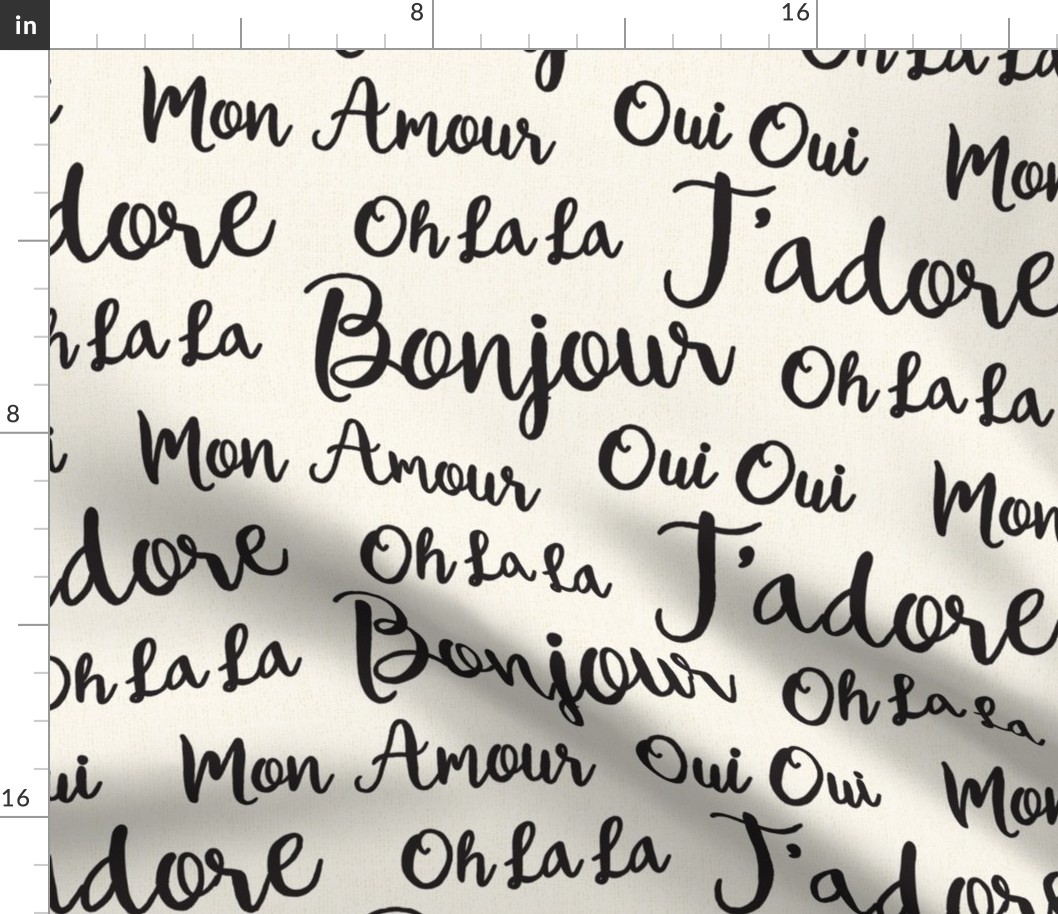 in 8 16
Oh La La
Mon Amour Oui Oui Mon
dore Oh La La J'adore
h La La Bonjour Oh La La
8
i Mon Amour Oui Oui Mon
dore Oh La La J'adore
Oh La La Bonjour Oh La La
ui Mon Amour Oui Oui Mon
16
dore Oh La La J'adore